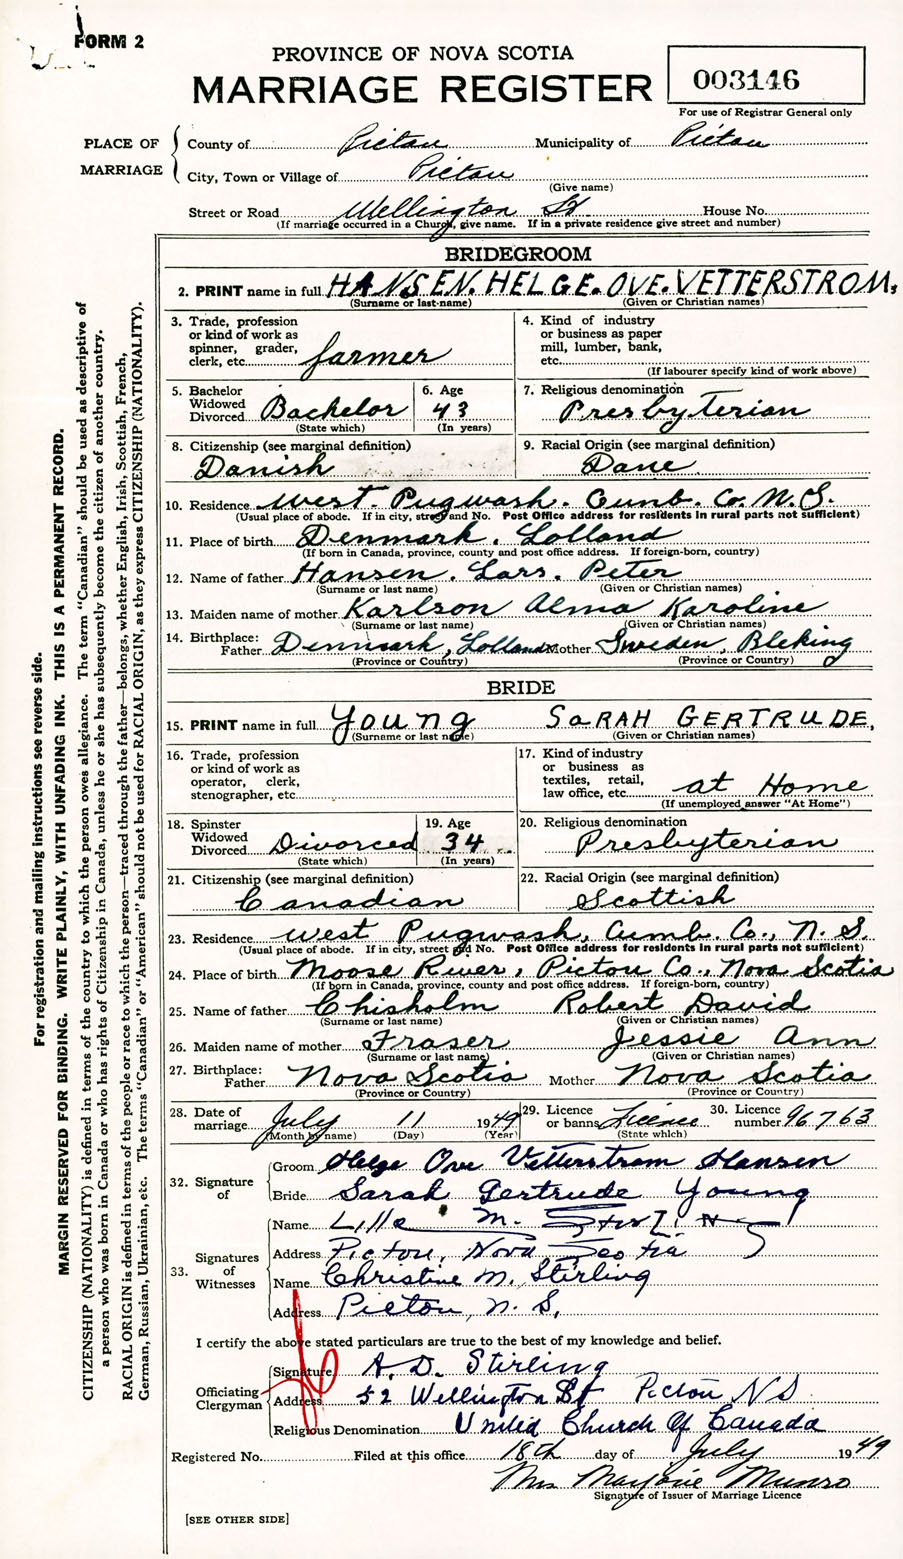 FORM 2
PROVINCE OF NOVA SCOTIA
MARRIAGE REGISTER
003146
For use of Registrar General only
PLACE OF MARRIAGE
County of Pictou Municipality of Pictou
City, Town or Village of Pictou
(Give name)
Street or Road Wellington St House No.
(If marriage occurred in a Church, give name. If in a private residence give street and number)
BRIDEGROOM
2. PRINT name in full HANSEN. HELGE. OVE. VETTERSTROM.
(Surname or last name) (Given or Christian names)
3. Trade, profession or kind of work as spinner, grader, clerk, etc. farmer
4. Kind of industry or business as paper mill, lumber, bank, etc.
(If labourer specify kind of work above)
5. Bachelor Widowed Divorced Bachelor
(State which)
6. Age 43
(In years)
7. Religious denomination Presbyterian
8. Citizenship (see marginal definition) Danish
9. Racial Origin (see marginal definition) Dane
10. Residence West. Pugwash. Cumb. Co. N.S.
(Usual place of abode. If in city, street and No. Post Office address for residents in rural parts not sufficient)
11. Place of birth Denmark. Lolland
(If born in Canada, province, county and post office address. If foreign-born, country)
12. Name of father Hansen. Lars. Peter
(Surname or last name) (Given or Christian names)
13. Maiden name of mother Karlson Alma Karoline
(Surname or last name) (Given or Christian names)
14. Birthplace: Father Denmark, Lolland Mother Sweden, Bleking
(Province or Country) (Province or Country)
BRIDE
15. PRINT name in full Young SARAH GERTRUDE,
(Surname or last name) (Given or Christian names)
16. Trade, profession or kind of work as operator, clerk, stenographer, etc.
17. Kind of industry or business as textiles, retail, law office, etc. at Home
(If unemployed answer "At Home")
18. Spinster Widowed Divorced Divorced
(State which)
19. Age 34
(In years)
20. Religious denomination Presbyterian
21. Citizenship (see marginal definition) Canadian
22. Racial Origin (see marginal definition) Scottish
23. Residence West Pugwash, Cumb. Co., N. S.
(Usual place of abode. If in city, street and No. Post Office address for residents in rural parts not sufficient)
24. Place of birth Moose River, Pictou Co., Nova Scotia
(If born in Canada, province, county and post office address. If foreign-born, country)
25. Name of father Chisholm Robert David
(Surname or last name) (Given or Christian names)
26. Maiden name of mother Fraser Jessie Ann
(Surname or last name) (Given or Christian names)
27. Birthplace: Father Nova Scotia Mother Nova Scotia
(Province or Country) (Province or Country)
28. Date of marriage July 11 1949
(Month by name) (Day) (Year)
29. Licence or banns Licence
(State which)
30. Licence number 96763
32. Signature of
Groom Helge Ove Vetterstrom Hansen
Bride Sarah Gertrude Young
33. Signatures of Witnesses
Name M. Stirling
Address Pictou, Nova Scotia
Name Christine M. Stirling
Address Pictou, N. S.
I certify the above stated particulars are true to the best of my knowledge and belief.
Officiating Clergyman
Signature A. D. Stirling
Address 52 Wellington St Pictou NS
Religious Denomination United Church Of Canada
Registered No. Filed at this office 18th day of July 1949
Mrs Marjorie Munro
Signature of Issuer of Marriage Licence
[SEE OTHER SIDE]
For registration and mailing instructions see reverse side.
MARGIN RESERVED FOR BINDING. WRITE PLAINLY, WITH UNFADING INK. THIS IS A PERMANENT RECORD.
CITIZENSHIP (NATIONALITY) is defined in terms of the country to which the person owes allegiance. The term "Canadian" should be used as descriptive of
a person who was born in Canada or who has rights of Citizenship in Canada, unless he or she has subsequently become the citizen of another country.
RACIAL ORIGIN is defined in terms of the people or race to which the person—traced through the father—belongs, whether English, Irish, Scottish, French,
German, Russian, Ukrainian, etc. The terms "Canadian" or "American" should not be used for RACIAL ORIGIN, as they express CITIZENSHIP (NATIONALITY).